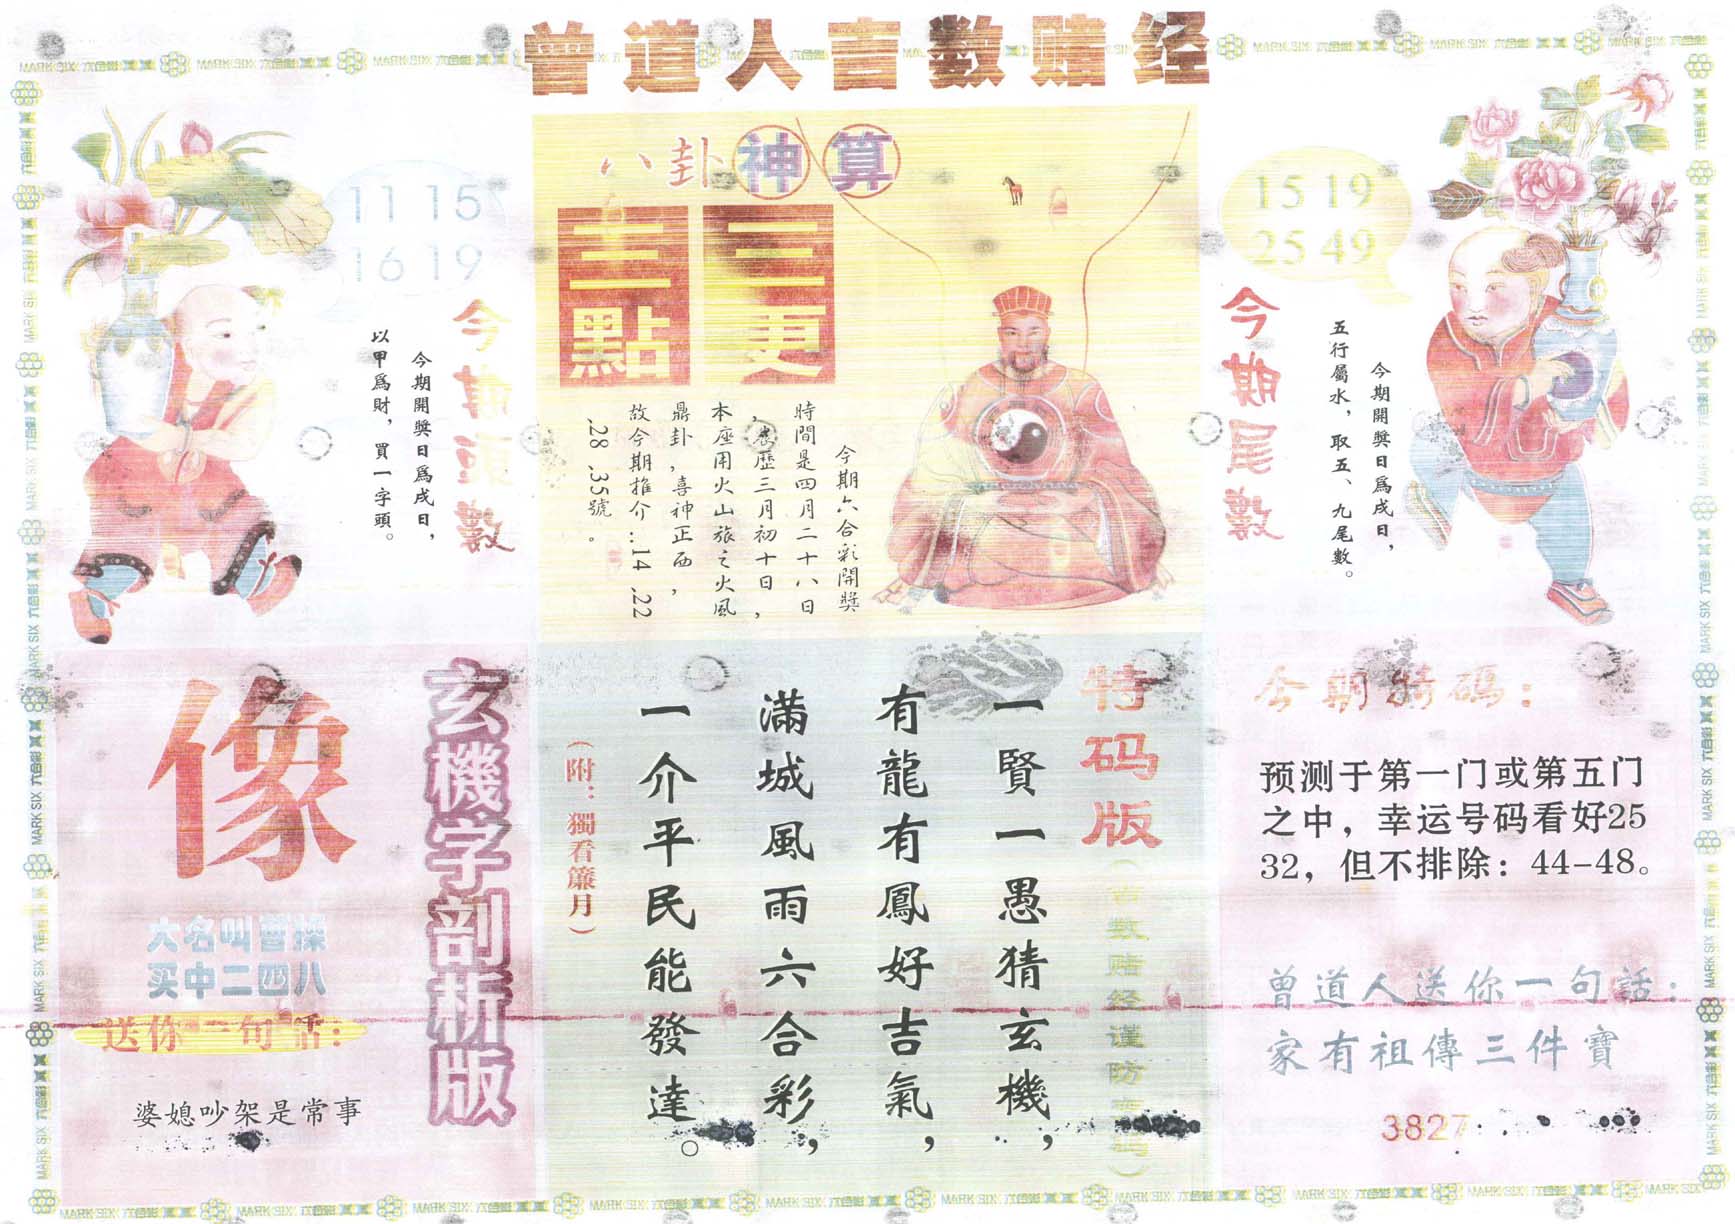 曾道人言数赌经
八卦神算
三更
三點
今期六合彩開獎
時間是四月二十八日
,農歷三月初十日,
本座用火山旅之火風
鼎卦,喜神正西,
故今期推介..14 .22
.28 .35號。
11 15
16 19
今期頭數
今期開獎日爲戌日,
以甲爲財,買一字頭。
15 19
25 49
今期尾數
今期開獎日爲戌日,
五行屬水,取五、九尾數。
玄機字剖析版
像
大名叫曹操
买中二四八
送你一句话:
婆媳吵架是常事
特码版
(言数赌经谨防
码)
一賢一愚猜玄機,
有龍有鳳好吉氣,
滿城風雨六合彩,
一介平民能發達。
(附:獨看簾月)
今期特碼:
预测于第一门或第五门
之中,幸运号码看好25
32,但不排除:44-48。
曾道人送你一句話:
家有祖傳三件寶
3827
MARK SIX 六合彩